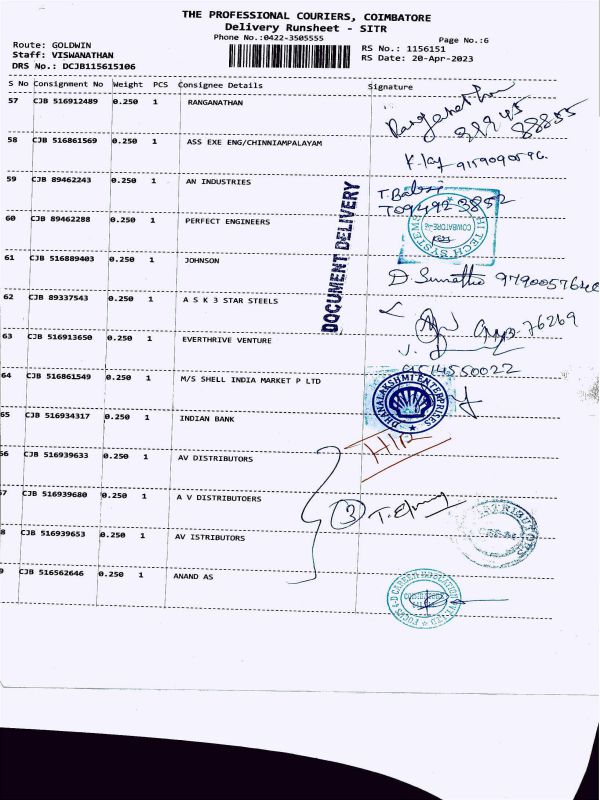 THE PROFESSIONAL COURIERS, COIMBATORE
Delivery Runsheet - SITR
Phone No.:0422-3505555
Page No.:6
Route: GOLDWIN
Staff: VISWANATHAN
DRS No.: DCJB115615106
RS No.: 1156151
RS Date: 20-Apr-2023
S No Consignment No Weight PCS Consignee Details Signature
57 CJB 516912489 0.250 1 RANGANATHAN Ranganathan
88855
58 CJB 516861569 0.250 1 ASS EXE ENG/CHINNIAMPALAYAM
59 CJB 89462243 0.250 1 AN INDUSTRIES
DOCUMENT DELIVERY
60 CJB 89462288 0.250 1 PERFECT ENGINEERS
HI TECH SYSTEMS
61 CJB 516889403 0.250 1 JOHNSON
62 CJB 89337543 0.250 1 A S K 3 STAR STEELS
76269
63 CJB 516913650 0.250 1 EVERTHRIVE VENTURE
9514550022
64 CJB 516861549 0.250 1 M/S SHELL INDIA MARKET P LTD
DHANALAKSHMI ENTERPRISES
65 CJB 516934317 0.250 1 INDIAN BANK
66 CJB 516939633 0.250 1 AV DISTRIBUTORS
67 CJB 516939680 0.250 1 A V DISTRIBUTOERS
3
8 CJB 516939653 0.250 1 AV ISTRIBUTORS
9 CJB 516562646 0.250 1 ANAND AS